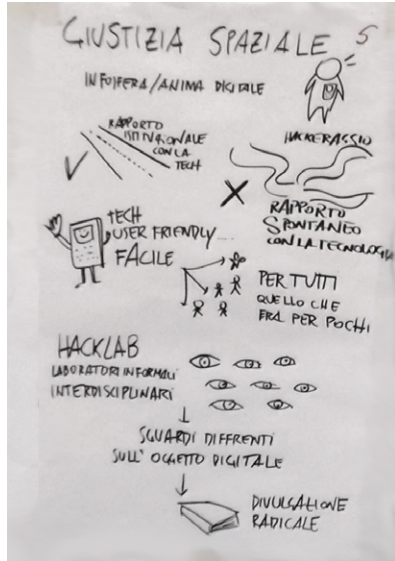 GIUSTIZIA SPAZIALE 5
INFOSFERA/ANIMA DIGITALE
HACKERAGGIO
RAPPORTO
ISTITUZIONALE
CON LA
TECH
RAPPORTO
SPONTANEO
CON LA TECNOLOGIA
TECH
USER FRIENDLY...
FACILE
PER TUTTI
QUELLO CHE
ERA PER POCHI
HACKLAB
LABORATORI INFORMALI
INTERDISCIPLINARI
SGUARDI DIFFRENTI
SULL' OGGETTO DIGITALE
DIVULGAZIONE
RADICALE